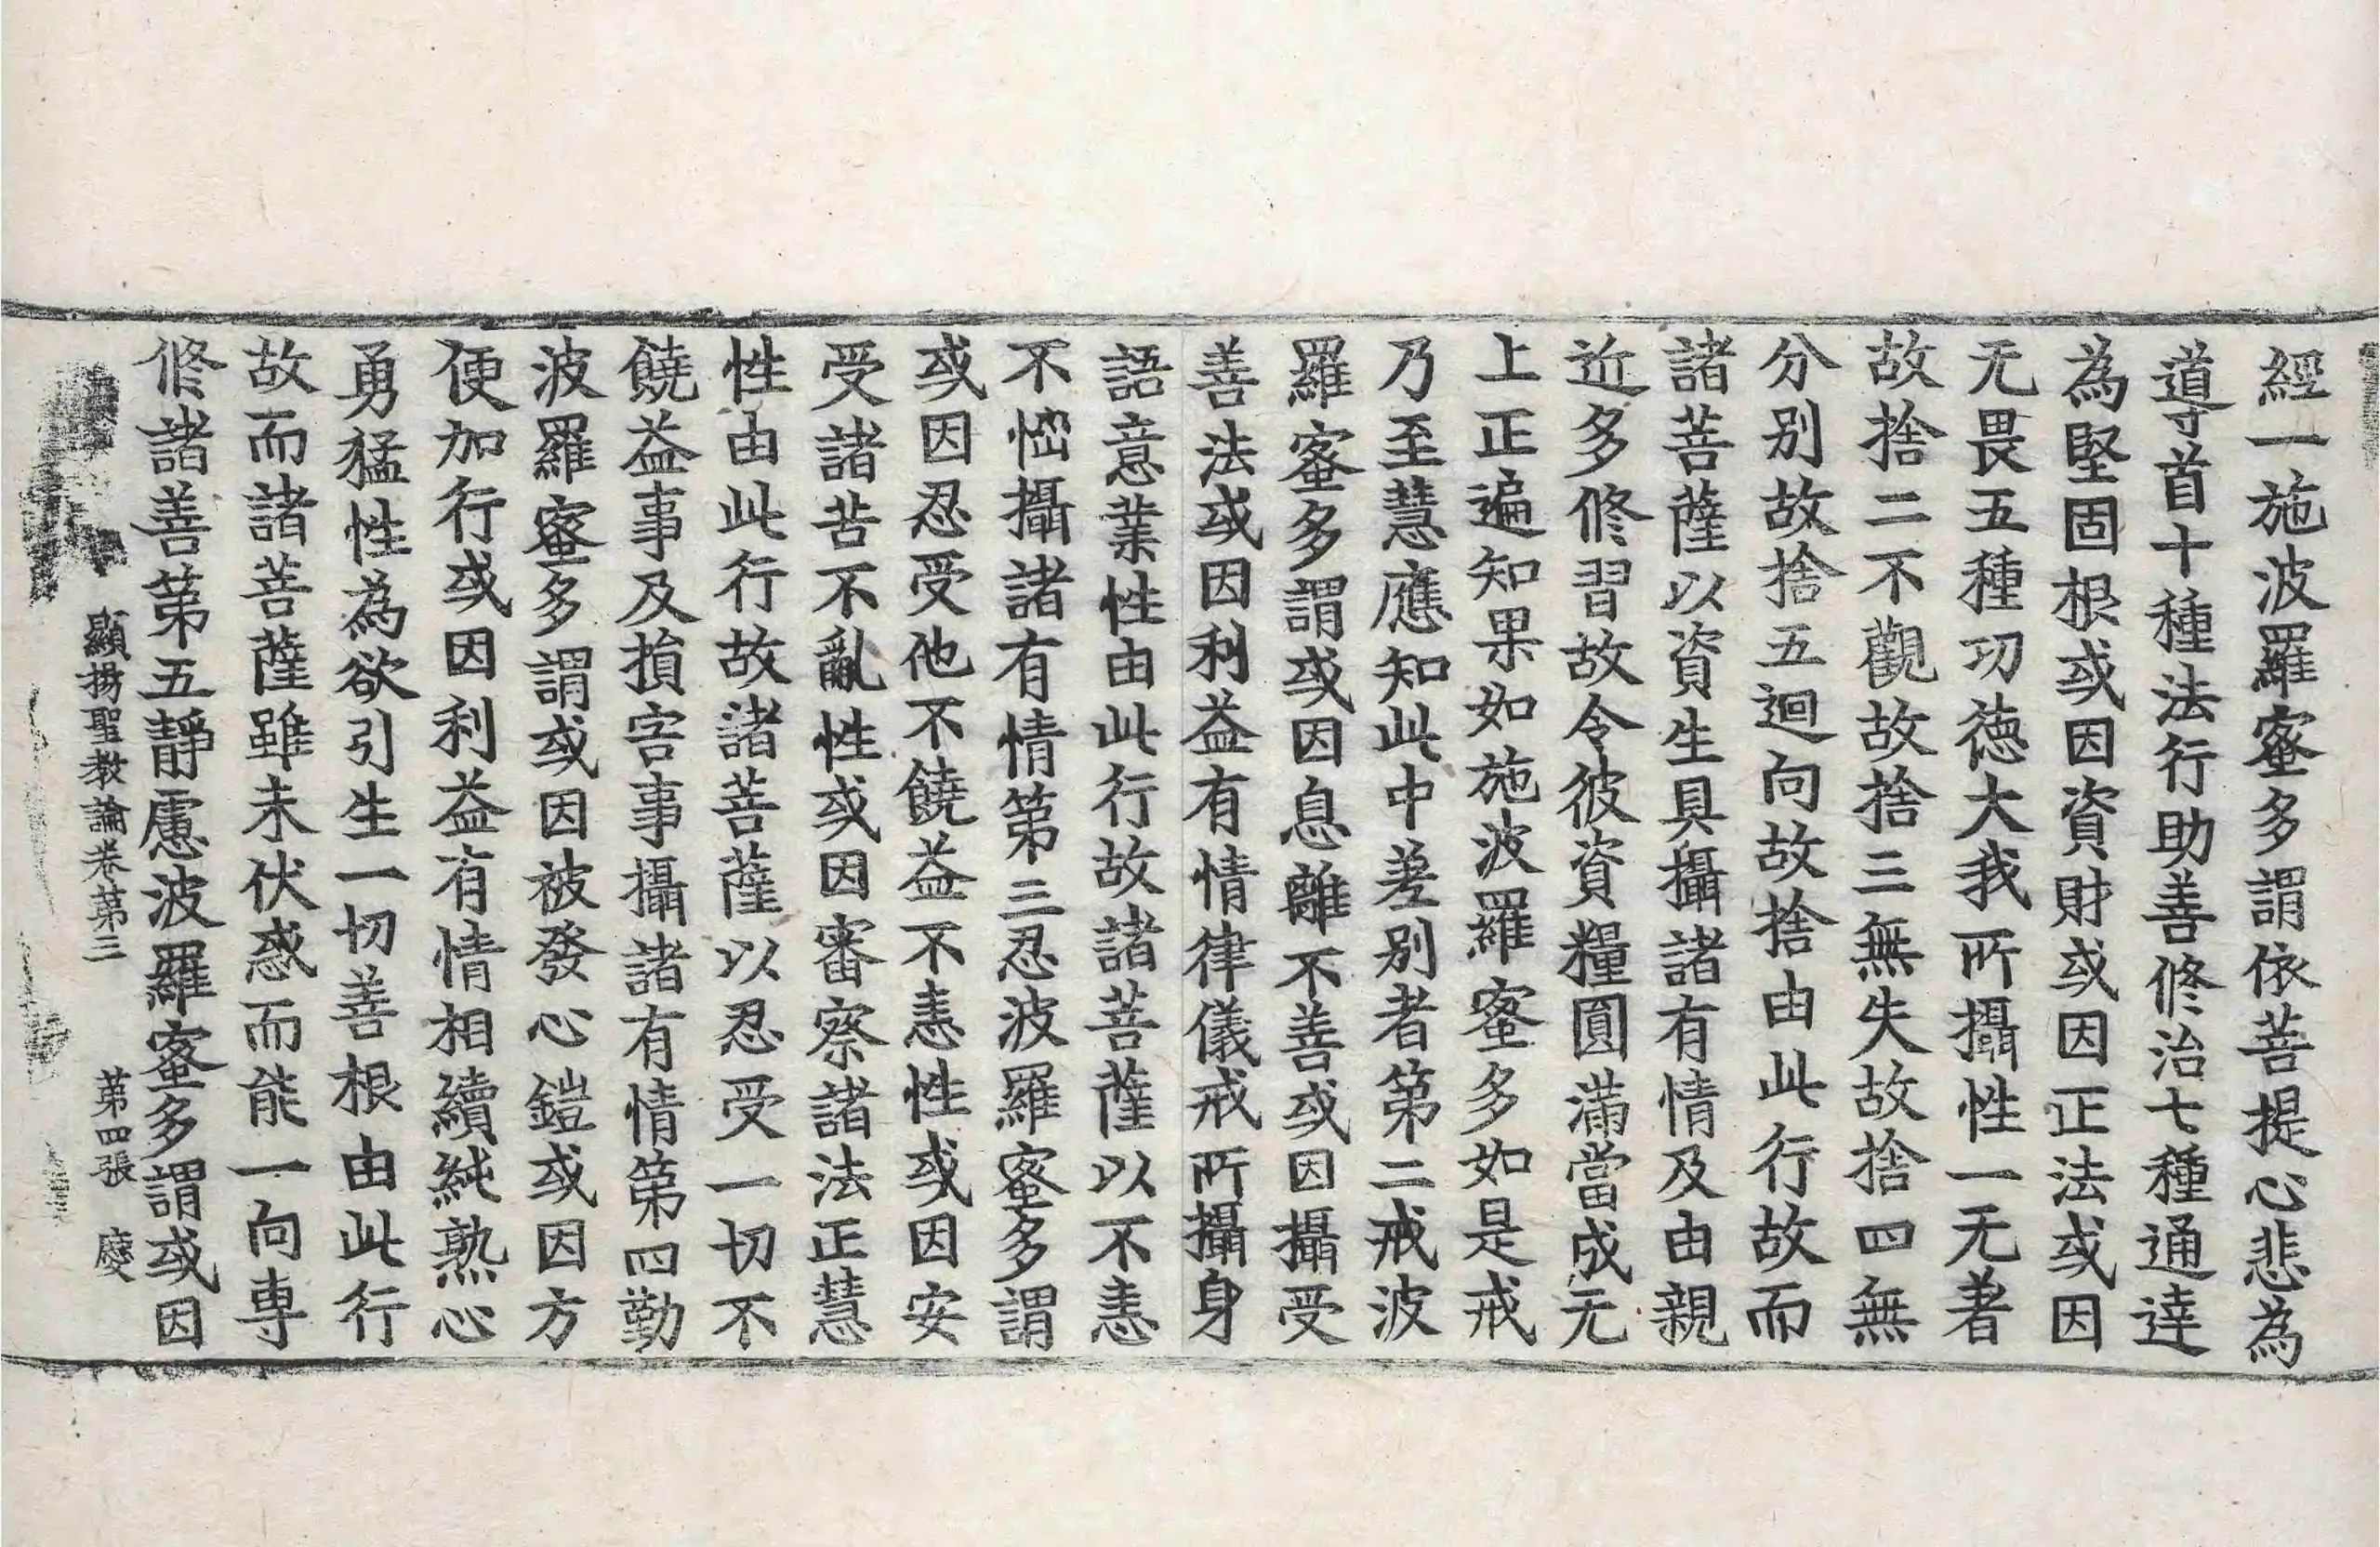 經一施波羅蜜多謂依菩提心悲為
導首十種法行助善修治七種通達
為堅固根或因資財或因正法或因
无畏五種功德大我所攝性一无著
故捨二不觀故捨三無失故捨四無
分別故捨五迴向故捨由此行故而
諸菩薩以資生具攝諸有情及由親
近多修習故令彼資糧圓滿當成无
上正遍知果如施波羅蜜多如是戒
乃至慧應知此中差別者第二戒波
羅蜜多謂或因息離不善或因攝受
善法或因利益有情律儀戒所攝身
語意業性由此行故諸菩薩以不恚
不惱攝諸有情第三忍波羅蜜多謂
或因忍受他不饒益不恚性或因安
受諸苦不亂性或因審察諸法正慧
性由此行故諸菩薩以忍受一切不
饒益事及損害事攝諸有情第四勤
波羅蜜多謂或因被發心鎧或因方
便加行或因利益有情相續純熟心
勇猛性為欲引生一切善根由此行
故而諸菩薩雖未伏惑而能一向專
修諸善第五靜慮波羅蜜多謂或因
顯揚聖教論卷第三 第四張